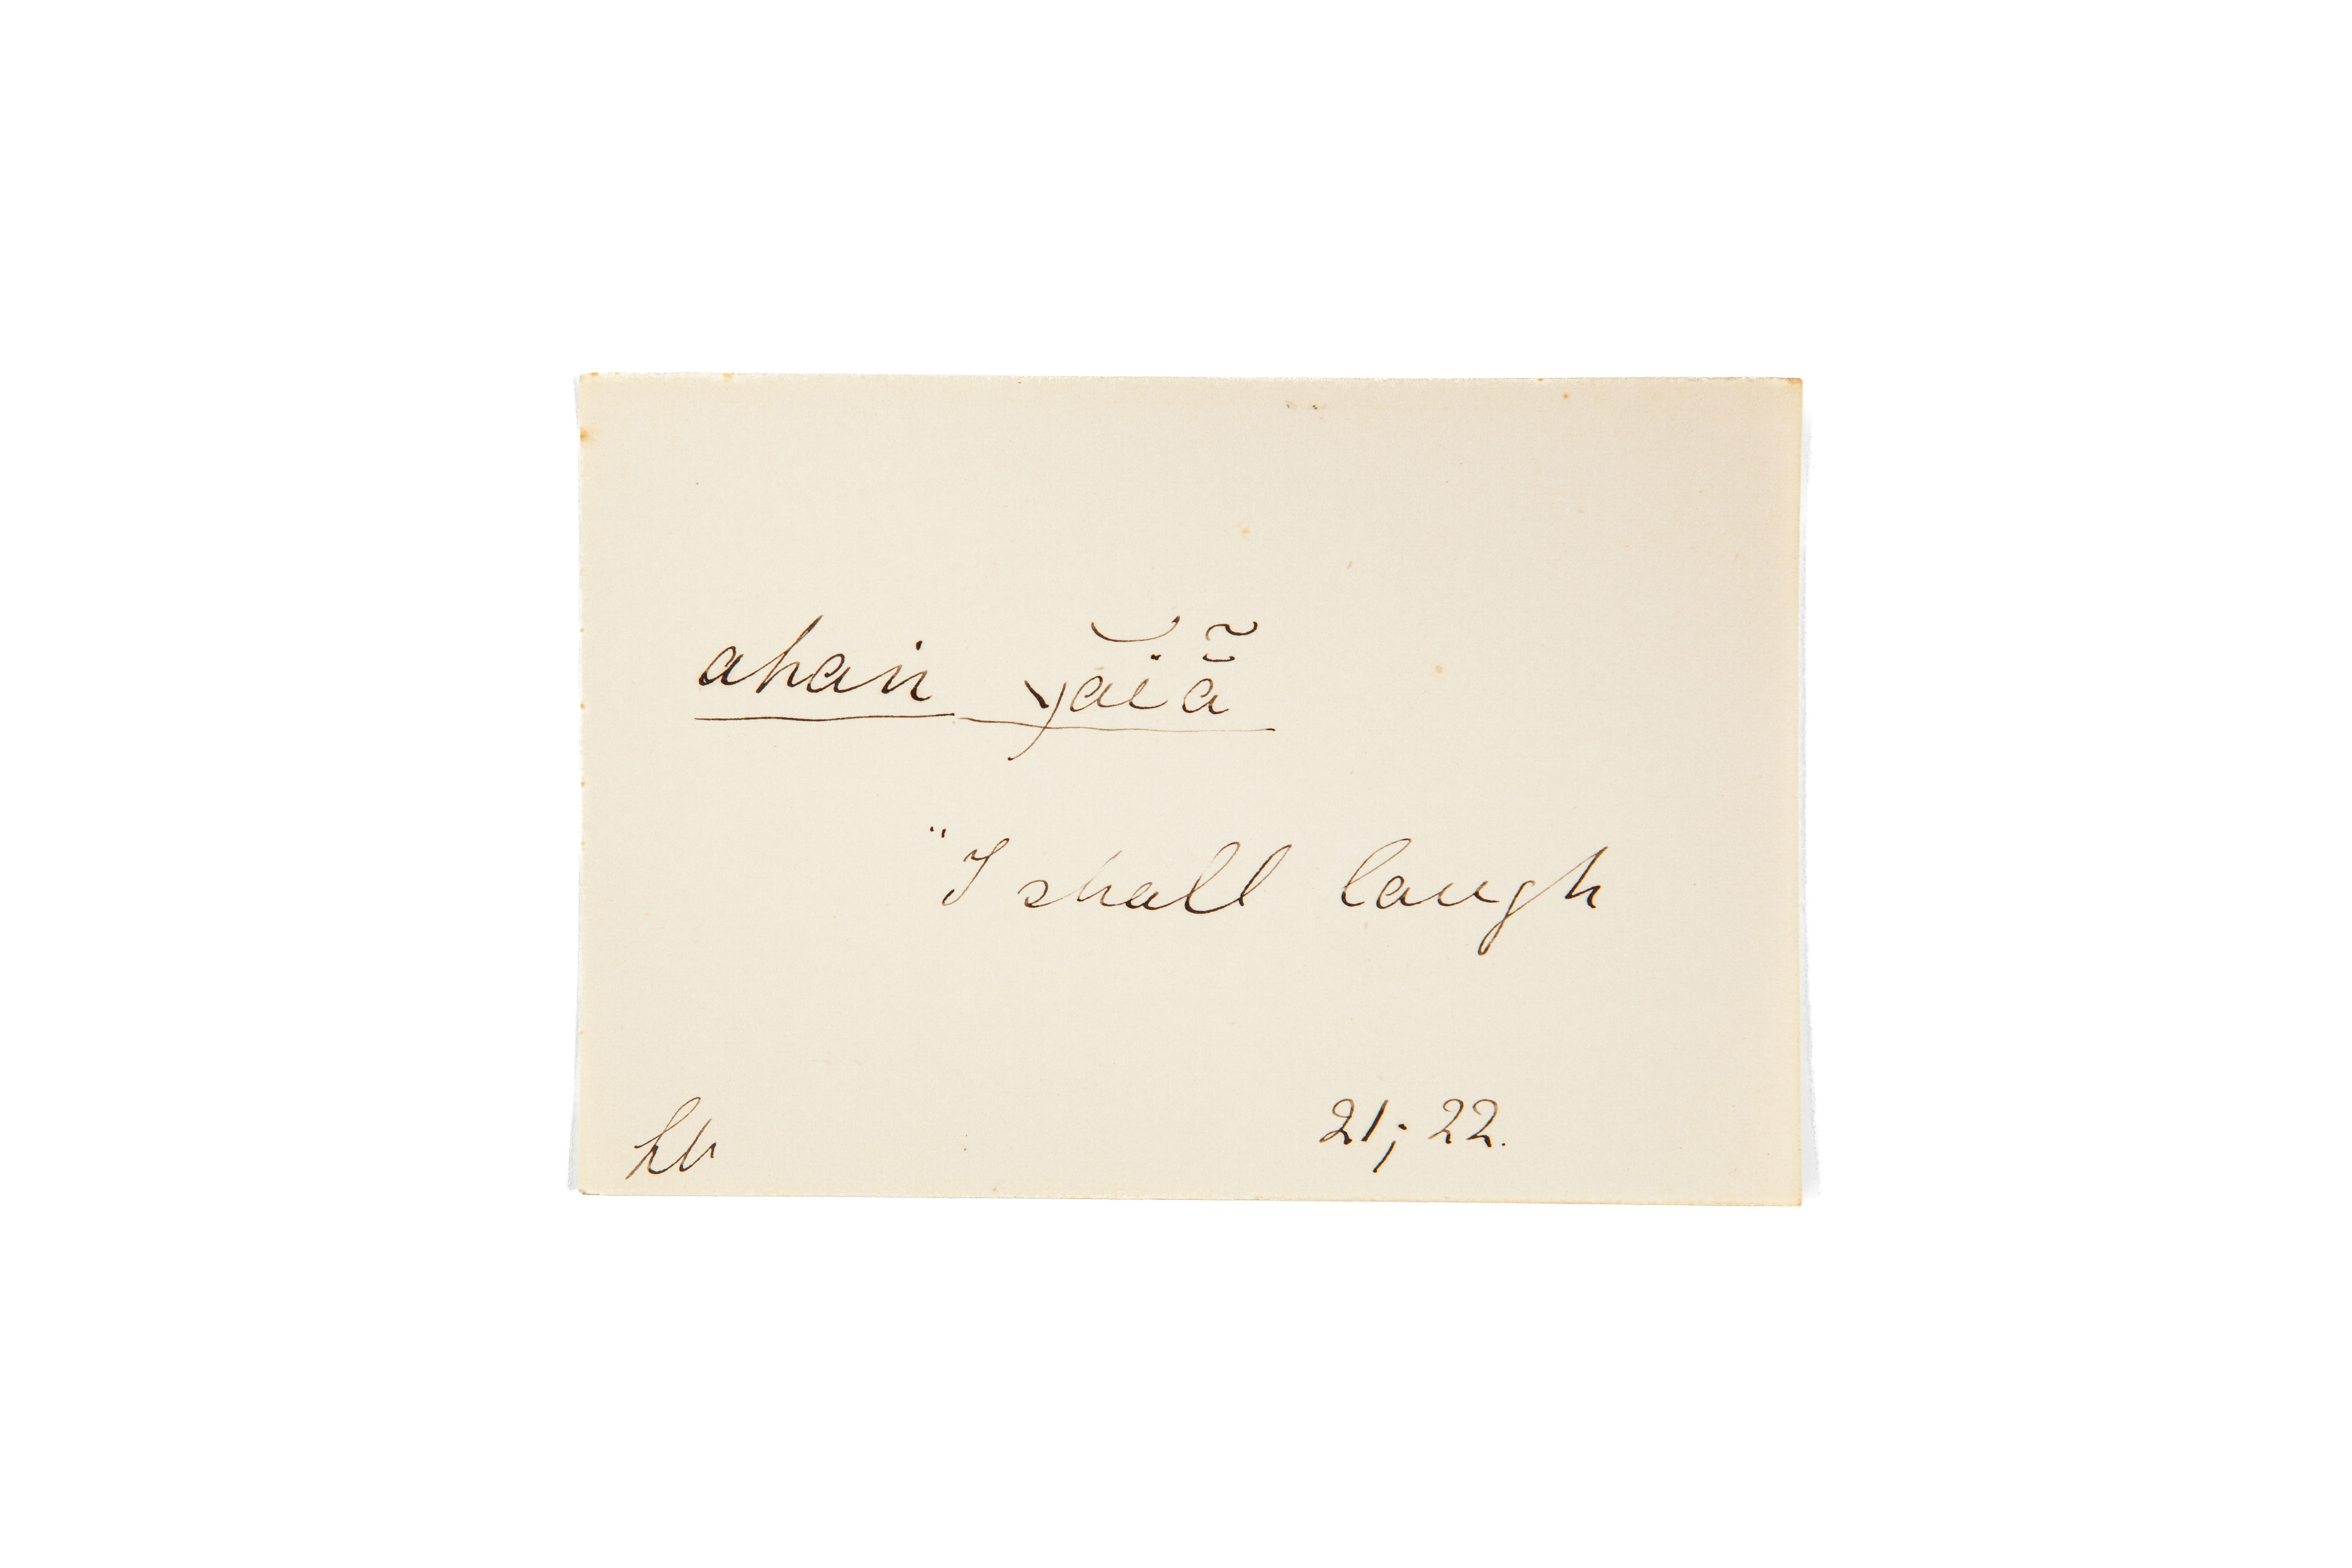 ahaṅ χa͝iã̆
"I shall laugh
21; 22.